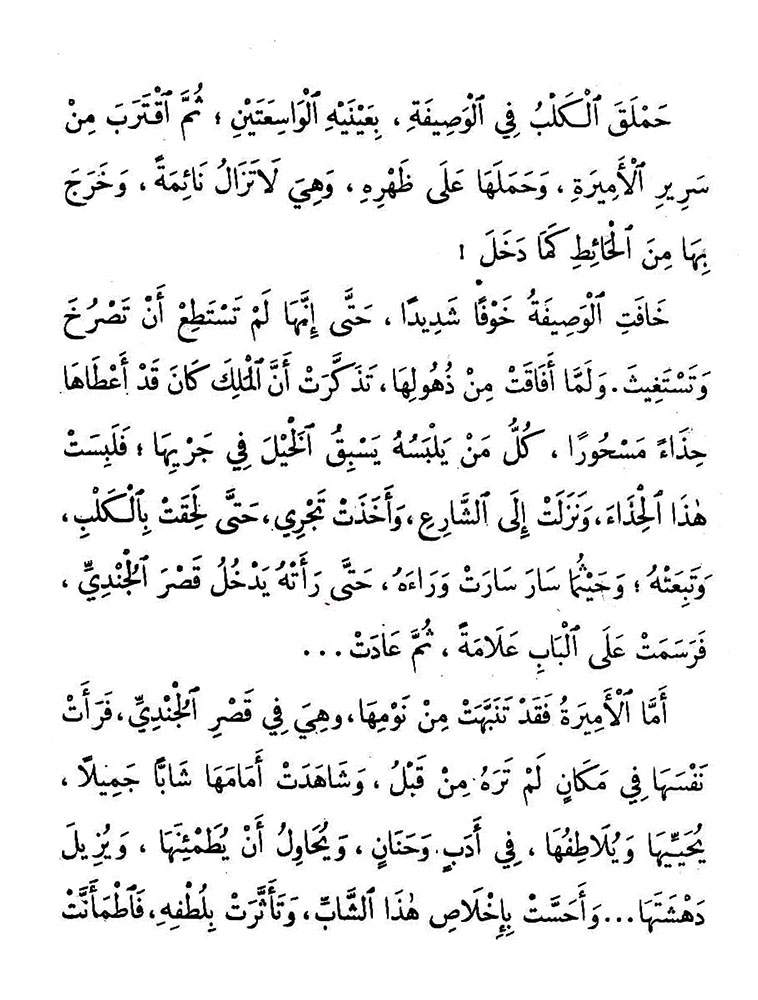 حَمْلَقَ ٱلْكَلْبُ فِي ٱلْوَصِيفَةِ ، بِعَيْنَيْهِ ٱلْوَاسِعَتَيْنِ ؛ ثُمَّ ٱقْتَرَبَ مِنْ
سَرِيرِ ٱلْأَمِيرَةِ ، وَحَمَلَهَا عَلَى ظَهْرِهِ ، وَهِيَ لَاتَزَالُ نَائِمَةً ، وَخَرَجَ
بِهَا مِنَ ٱلْحَائِطِ كَمَا دَخَلَ !
خَافَتِ ٱلْوَصِيفَةُ خَوْفًا شَدِيدًا ، حَتَّى إِنَّهَا لَمْ تَسْتَطِعْ أَنْ تَصْرُخَ
وَتَسْتَغِيثَ . وَلَمَّا أَفَاقَتْ مِنْ ذُهُولِهَا ، تَذَكَّرَتْ أَنَّ ٱلْمَلِكَ كَانَ قَدْ أَعْطَاهَا
حِذَاءً مَسْحُورًا ، كُلُّ مَنْ يَلْبَسُهُ يَسْبِقُ ٱلْخَيْلَ فِي جَرْيِهَا ؛ فَلَبِسَتْ
هٰذَا ٱلْحِذَاءَ ، وَنَزَلَتْ إِلَى ٱلشَّارِعِ ، وَأَخَذَتْ تَجْرِي ، حَتَّى لَحِقَتْ بِٱلْكَلْبِ ،
وَتَبِعَتْهُ ؛ وَحَيْثُمَا سَارَ سَارَتْ وَرَاءَهُ ، حَتَّى رَأَتْهُ يَدْخُلُ قَصْرَ ٱلْجُنْدِيِّ ،
فَرَسَمَتْ عَلَى ٱلْبَابِ عَلَامَةً ، ثُمَّ عَادَتْ ...
أَمَّا ٱلْأَمِيرَةُ فَقَدْ تَنَبَّهَتْ مِنْ نَوْمِهَا ، وهِيَ فِي قَصْرِ ٱلْجُنْدِيِّ ، فَرَأَتْ
نَفْسَهَا فِي مَكَانٍ لَمْ تَرَهُ مِنْ قَبْلُ ، وَشَاهَدَتْ أَمَامَهَا شَابًّا جَمِيلًا ،
يُحَيِّيهَا وَيُلَاطِفُهَا ، فِي أَدَبٍ وَحَنَانٍ ، وَيُحَاوِلُ أَنْ يُطَمْئِنَهَا ، وَيُزِيلَ
دَهْشَتَهَا ... وَأَحَسَّتْ بِإِخْلَاصِ هٰذَا ٱلشَّابِّ ، وَتَأَثَّرَتْ بِلُطْفِهِ ، فَٱطْمَأَنَّتْ